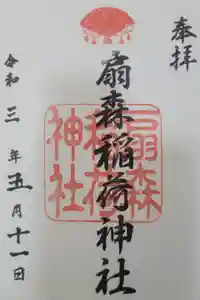 奉拝
扇森稲荷神社
扇森稲荷神社
令和三年五月十一日